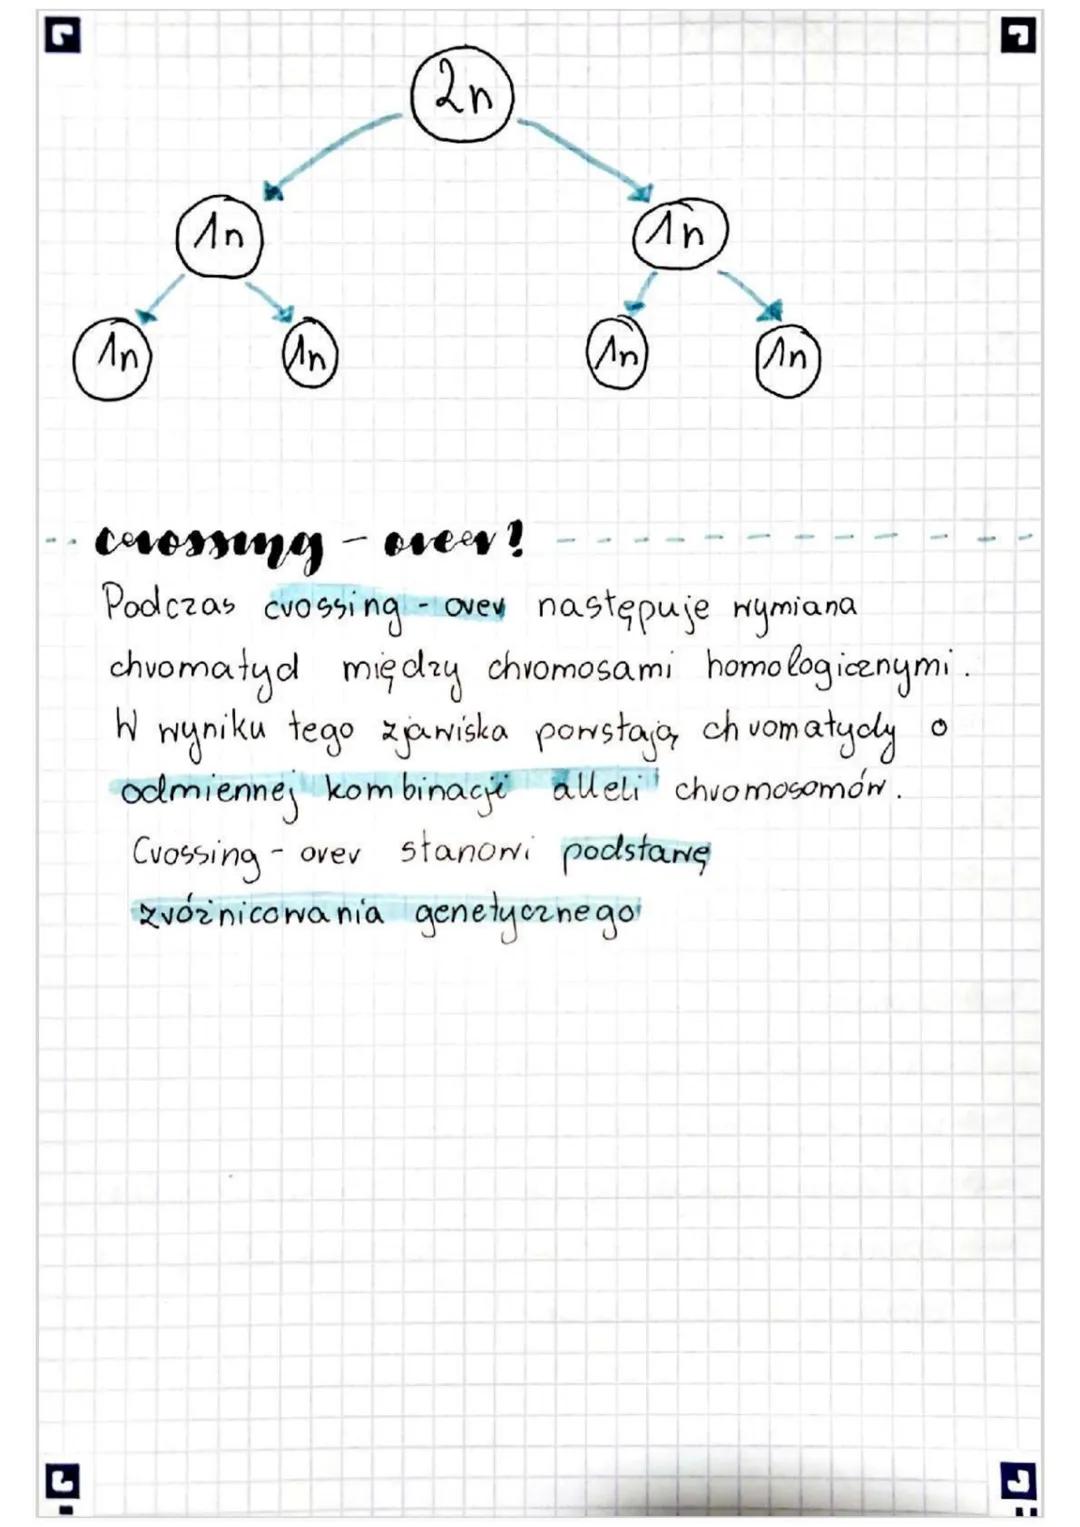 2n
1n 1n
1n 1n 1n 1n
crossing - over!
Podczas crossing - over następuje wymiana
chromatyd między chromosami homologicznymi.
W wyniku tego zjawiska powstają chromatydy o
odmiennej kombinacji alleli chromosomów.
Crossing - over stanowi podstawę
zróżnicowania genetycznego